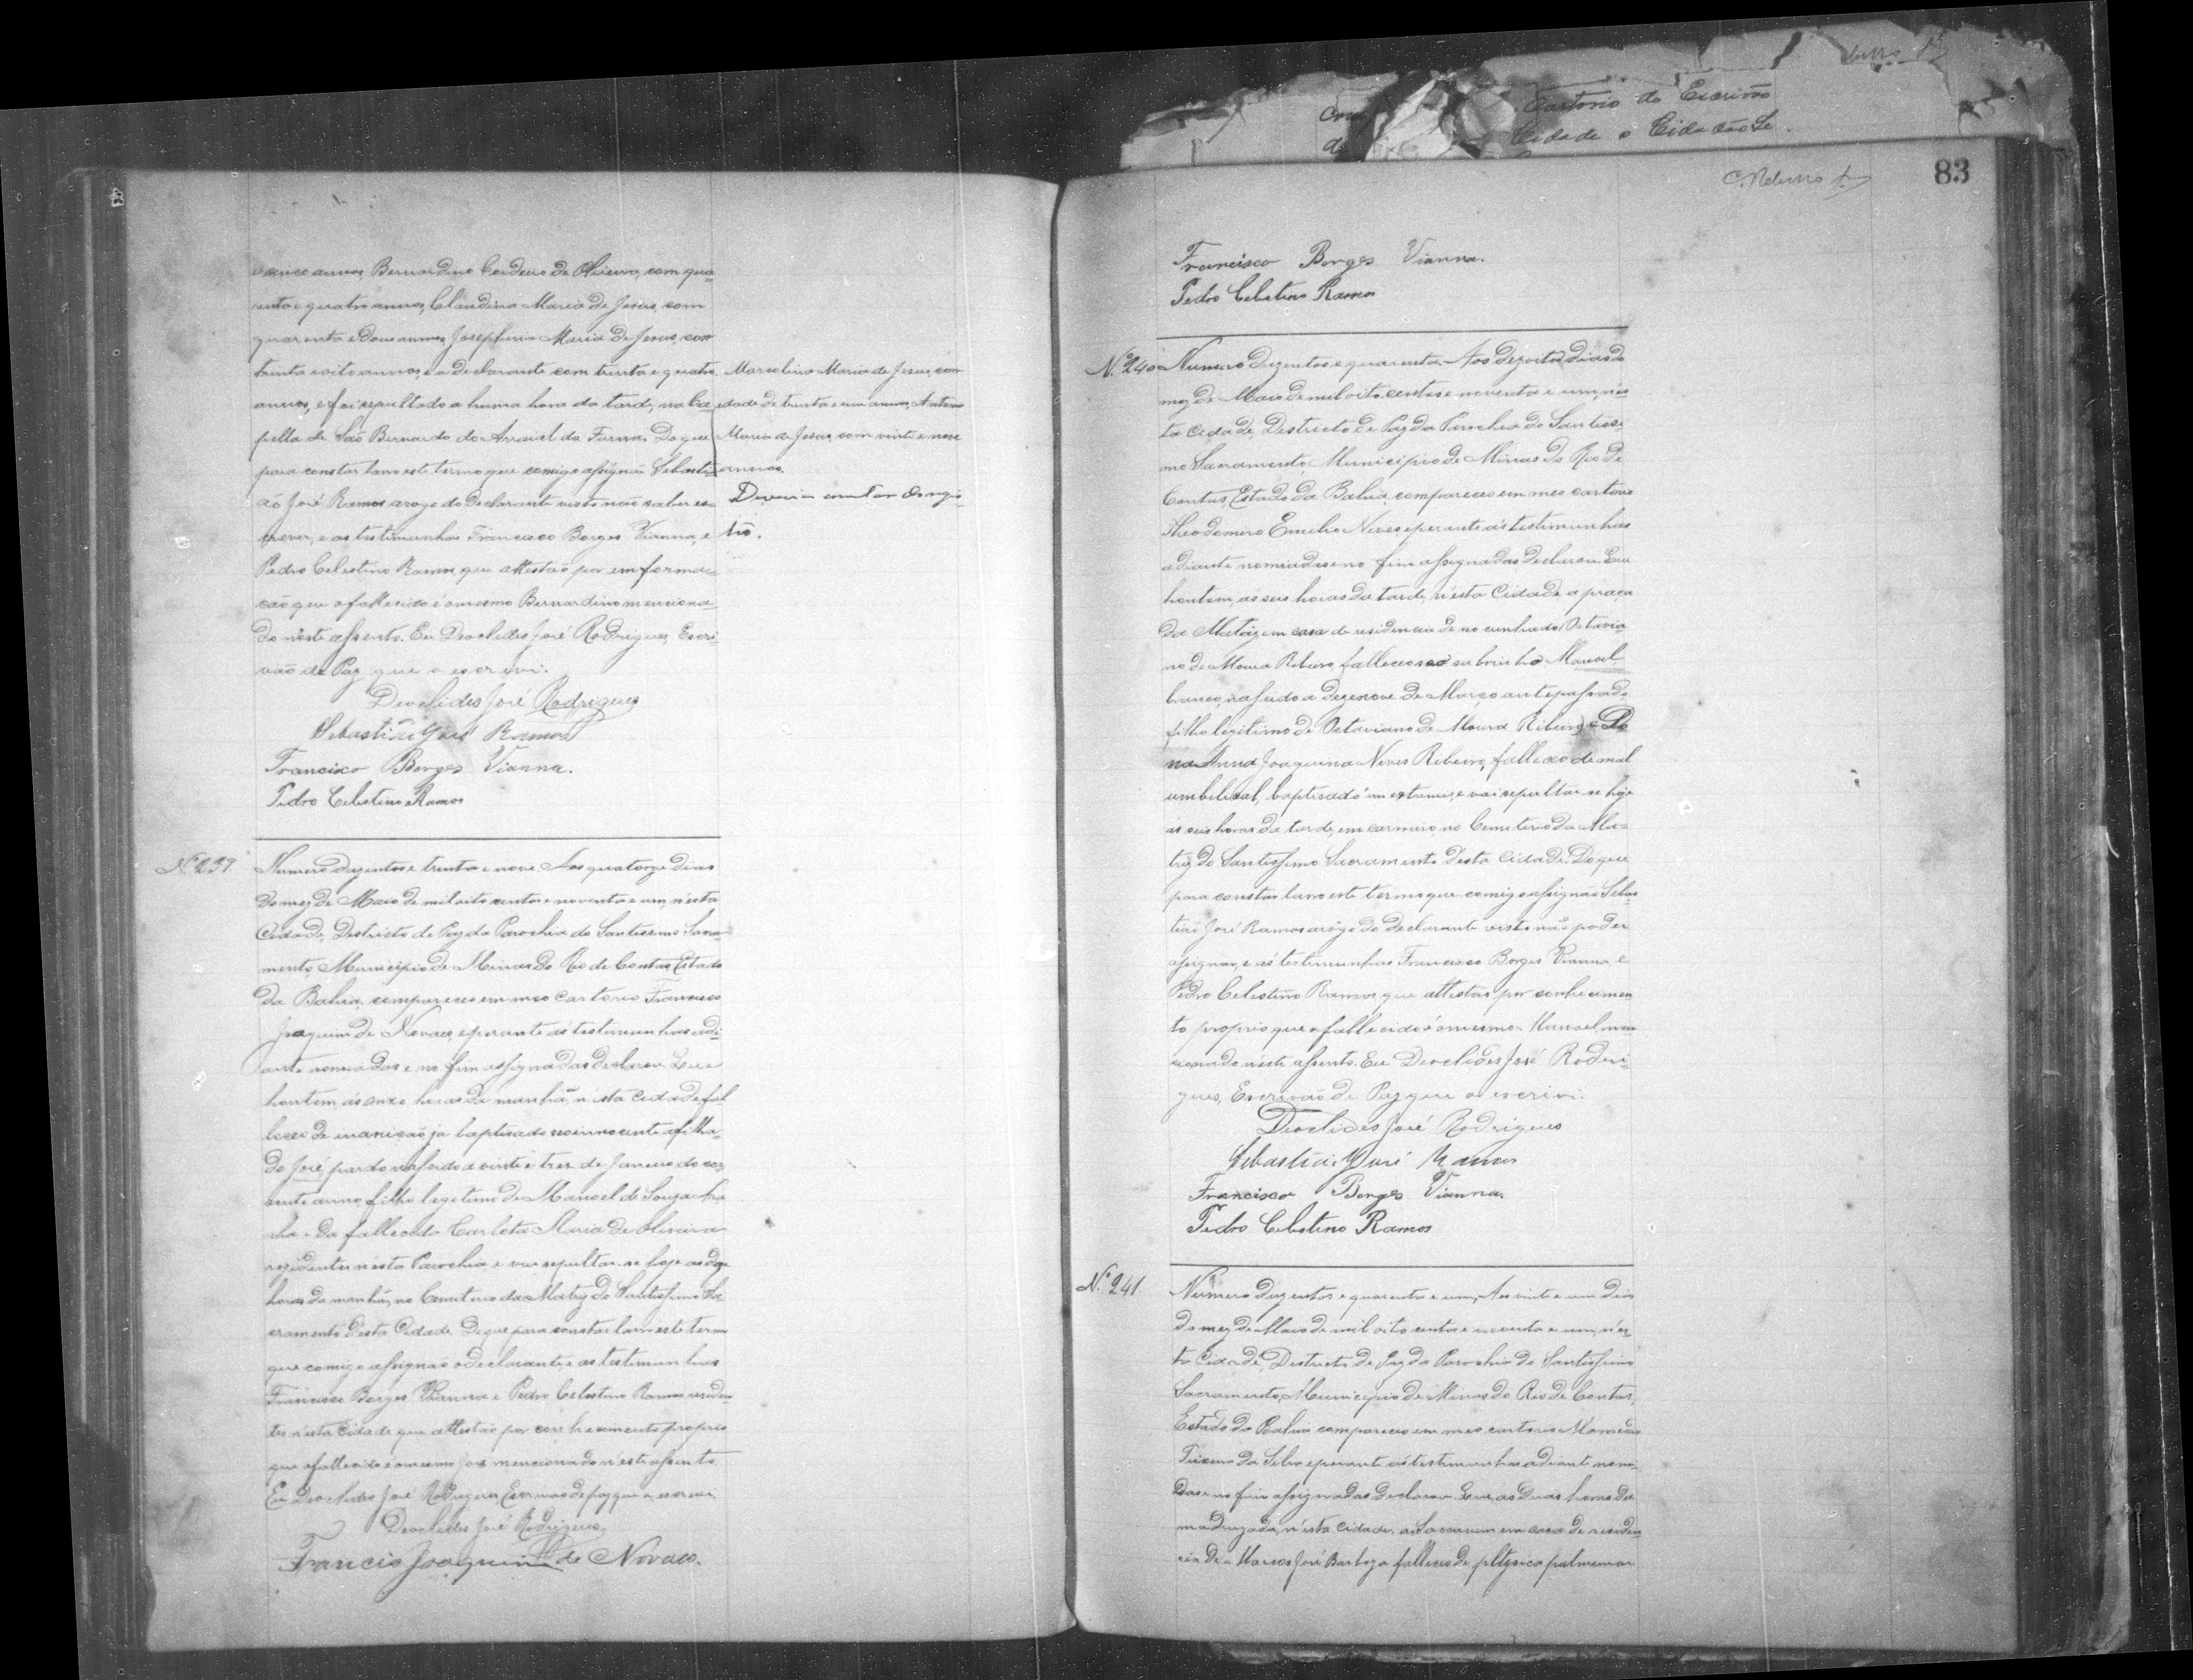 cinco annos, Bernardino Cordeiro de Oliveira, com qua-
renta e quatro annos, Claudina Maria de Jesus, com
quarenta e dous annos, Josephina Maria de Jesus, com
trinta e oito annos, e a declarante com trinta e quatro
annos, e foi sepultado a huma hora da tarde, na Ca-
pella de São Bernardo do Arraial da Furna. Do que
para constar lavro este termo que comigo assignão Sebasti-
ão José Ramos arogo do declarante visto não saber es-
crever, e as testimunhas Francisco Borges Vianna, e
Pedro Celestino Ramos, que attestão por emforma-
ção que o fallecido é o mesmo Bernardino menciona-
do n'este assento. Eu Deoclides José Rodrigues, Escri-
vão de Paz que o escrevi.
Deoclides José Rodrigues
Sebastião José Ramos
Francisco Borges Vianna.
Pedro Celestino Ramos
Marcolina Maria de Jesus, com
edade de trinta e um annos, Antonia
Maria de Jesus, com vinte e nove
annos.
Deveria constar do regis-
tro.
Nº 239
Numero duzentos e trinta e nove Aos quatorze dias
do mez de Maio de mil oito centos e noventa e um, n'esta
Cidade, Districto de Paz da Parochia do Santissimo Sacra-
mento Municipio de Minas do Rio de Contas, Estado
da Bahia, compareceu em meo Cartorio Francisco
Joaquim de Novaes, e perante as testimunhas adi-
ante nomiadas e no fim assignadas declarou Que
hontem as onze horas da manhã, n'esta Cidade fal-
leceo de inanição ja baptisado seo innocente afilha-
do José, pardo nascido a vinte e tres de Janeiro do cor-
rente anno, filho legitimo de Manoel de Souza
e da fallecida Carlota Maria de Oliveira
rezidentes n'esta Parochia e vai sepultar-se hoje as dez
horas da manhã, no Cemiterio da Matriz do Santissimo Sa-
cramento d'esta Cidade. Do que para constar lavro este termo
que comigo assignão o declarante e as testimunhas
Francisco Borges Vianna e Pedro Celestino Ramos residen-
tes n'esta Cidade que attestão por conhecimento proprio
que o fallecido é o mesmo José mencionado n'este assento.
Eu Deoclides José Rodrigues, Escrivão de paz que o escrevi.
Deoclides José Rodrigues.
Francis Joaquim de Novaes.
Cartorio do Escrivão
Cidade o Cidadão Se
83
Francisco Borges Vianna.
Pedro Celestino Ramos
Nº 240
Numero duzentos e quarenta. Aos dezoito dias do
mez de Maio de mil oito centos e noventa e um, n'es-
ta Cidade, Districto de Paz da Parochia do Santissi-
mo Sacramento, Municipio de Minas do Rio de
Contas, Estado da Bahia, compareceo em meo cartorio
Theodomiro Emilio Neves e perante as testimunhas
adiante nomiadas e no fim assignadas declarou. Que
hontem, as seis horas da tarde, n'esta Cidade a praça
da Matriz em casa de residencia de no cunhado Octavia-
no de Moura Ribeiro, falleceo seo subrinho Manoel,
branco, nascido a dezenove de Março ante passado
filho legitimo de Octaviano de Moura Ribeiro, e Do-
na Anna Joaquina Neves Ribeiro, falleceo de mal
umbilical, baptisado em extremis, e vai sepultar-se hoje
as seis horas da tarde, em carneiro no Cemiterio da Ma-
triz do Santissimo Sacramento d'esta Cidade. Do que
para constar lavro este termo que comigo assignão Sebas-
tião José Ramos arogo do declarante visto não poder
assignar, e as testimunhas Francisco Borges Vianna, e
Pedro Celestino Ramos que attestão por conhecimen-
to proprio que o fallecido é o mesmo Manoel men-
cionado n'este assento. Eu Deoclides José Rodri-
gues, Escrivão de Paz que o escrevi.
Deoclides José Rodrigues
Sebastião José Ramos
Francisco Borges Vianna.
Pedro Celestino Ramos
Nº 241
Numero duzentos e quarenta e um, Aos vinte e um dias
do mez de Maio de mil oito centos e noventa e um, n'es-
ta Cidade, Districto de Paz da Parochia do Santissimo
Sacramento, Municipio de Minas do Rio de Contas,
Estado da Bahia compareceo em meo cartorio
Teixeira da Silva e perante as testimunhas adiante nomi-
adas e no fim assignadas declarou Que, as duas horas da
madrugada, n'esta Cidade, em casa de residen-
cia de Marcos José Barboza falleceo de phtysica pulmonar